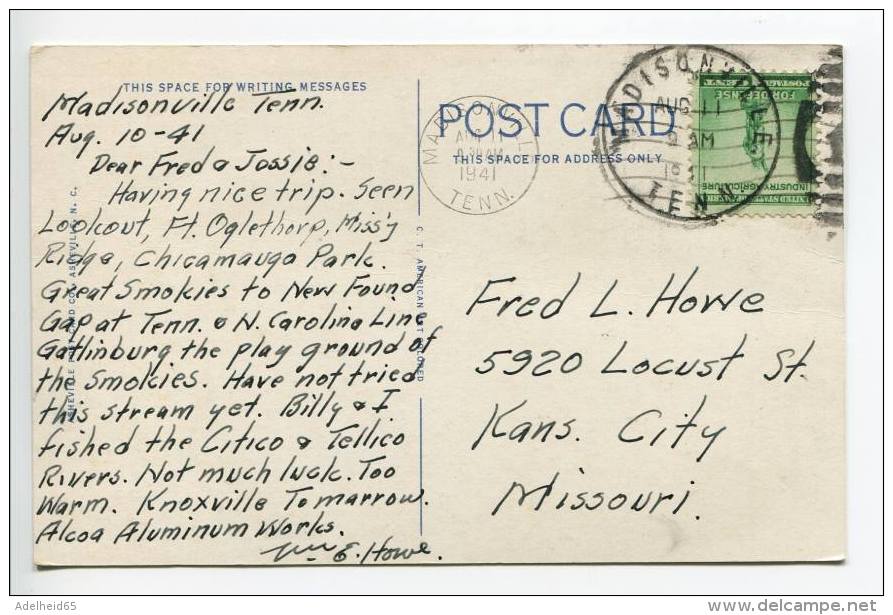 THIS SPACE FOR WRITING MESSAGES
Madisonville Tenn.
Aug. 10-41
Dear Fred & Jossie:-
Having nice trip. Seen
Lookout, Ft. Oglethorp, Miss'y
Ridge, Chicamauga Park.
Great Smokies to New Found
Gap at Tenn. & N. Carolina Line
Gatlinburg the play ground of
the Smokies. Have not tried
this stream yet. Billy & I
fished the Citico & Tellico
Rivers. Not much luck. Too
Warm. Knoxville Tomarrow.
Alcoa Aluminum Works.
Wm E. Howe.
ASHEVILLE POST CARD CO., ASHEVILLE, N. C.
C. T. AMERICAN ART COLORED
POST CARD
THIS SPACE FOR ADDRESS ONLY
MADISONVILLE
AUG 11
1941
TENN.
MADISONVILLE
AUG 11
AM
TENN.
FOR DEFENSE
INDUSTRY AGRICULTURE
UNITED STATES OF AMERICA
Fred L. Howe
5920 Locust St.
Kans. City
Missouri.
Adelheid65
www.delcampe.net